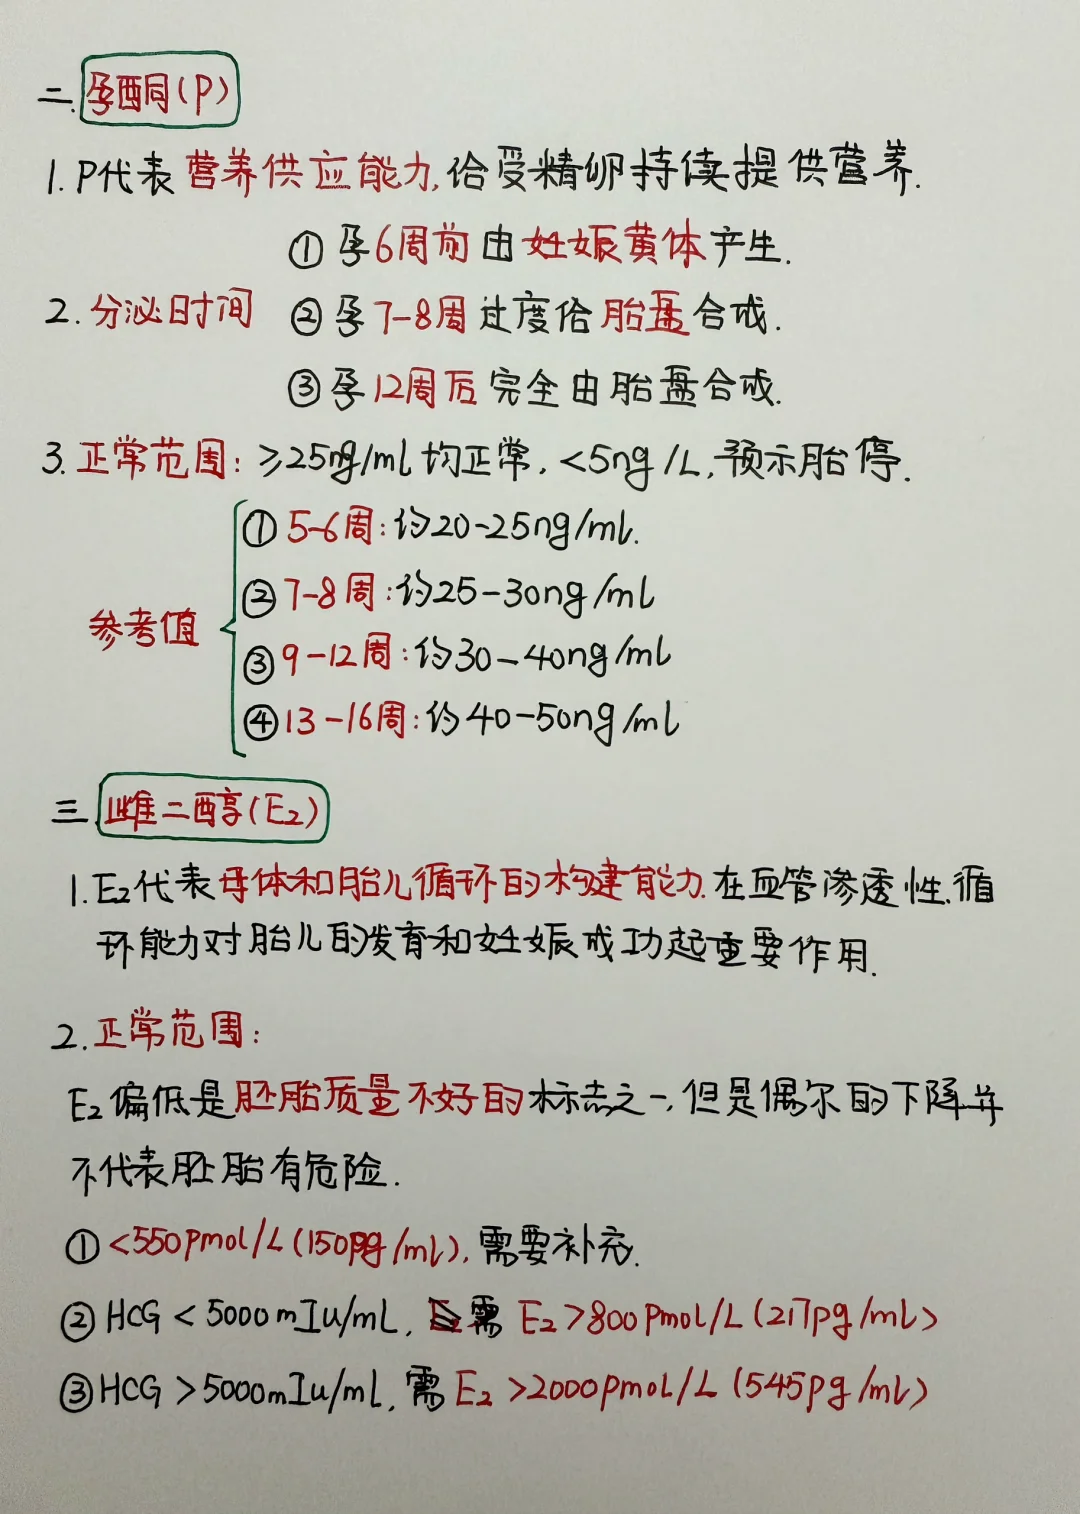 二.孕酮(P)
1.P代表营养供应能力,给受精卵持续提供营养.
①孕6周前由妊娠黄体产生.
2.分泌时间 ②孕7-8周过度给胎盘合成.
③孕12周后完全由胎盘合成.
3.正常范围:≥25ng/ml均正常,<5ng/L,预示胎停.
①5-6周:约20-25ng/ml.
②7-8周:约25-30ng/ml
参考值
③9-12周:约30-40ng/ml
④13-16周:约40-50ng/ml
三.雌二醇(E2)
1.E2代表母体和胎儿循环的构建能力.在血管渗透性.循
环能力对胎儿的发育和妊娠成功起重要作用.
2.正常范围:
E2偏低是胚胎质量不好的标志之一,但是偶尔的下降并
不代表胚胎有危险.
①<550pmol/L(150pg/ml),需要补充.
②HCG<5000mIu/mL,需E2>800pmol/L(217pg/ml)
③HCG>5000mIu/ml,需E2>2000pmol/L(545pg/ml)